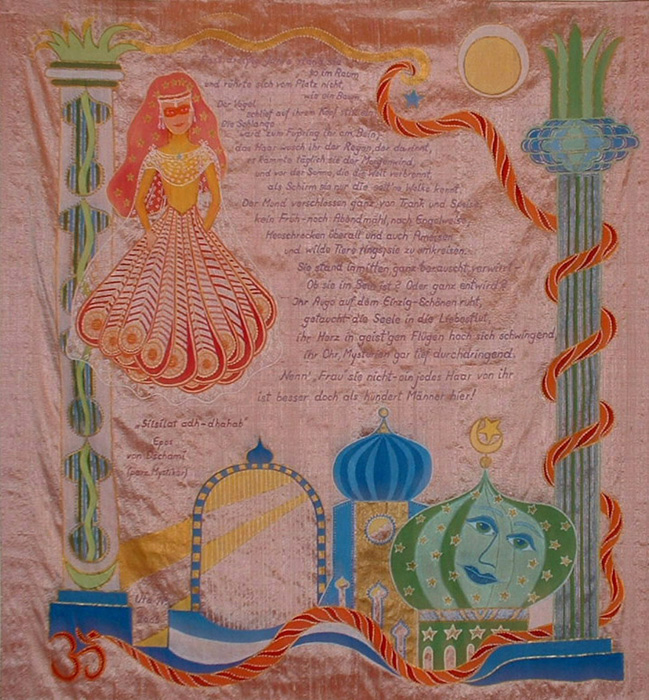 so im Raum
und rührte sich vom Platz nicht,
wie ein Baum.
Der Vogel
schlief auf ihrem Kopf
Die Schlange
ward zum Fußring ihr am Bein;
das Haar wusch ihr der Regen, der da rinnt,
es kämmte täglich sie der Morgenwind,
und vor der Sonne, die die Welt verbrennt,
als Schirm sie nur die Wolke kennt.
Der Mund verschlossen ganz von Trank und Speise,
kein Früh- noch Abendmahl, nach Engelweise
Heuschrecken überall und auch Ameisen
und wilde Tiere fingen sie zu umkreisen.
Sie stand inmitten ganz berauscht, verwirrt -
Ob sie im Sein ist? Oder ganz entwird?
Ihr Auge auf dem Einzig-Schönen ruht,
getaucht die Seele in die Liebesflut,
ihr Herz in geist'gen Flügen hoch sich schwingend,
ihr Ohr, Mysterien gar tief durchdringend.
Nenn' „Frau" sie nicht - ein jedes Haar von ihr
ist besser doch als hundert Männer hier!
„Silsilat adh-dhahab"
Epos
von Dschami
(pers. Mystiker)
ॐ